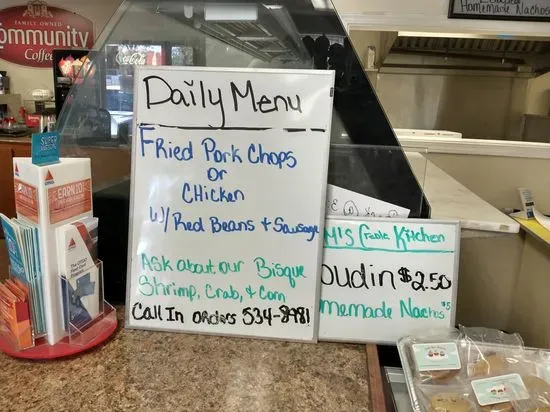 FAMILY OWNED
Community
Coffee
Coca-Cola
Homemade Nachos
Daily Menu
Fried Pork Chops
or
Chicken
w/ Red Beans + Sausage
Ask about our Bisque
Shrimp, Crab, & Corn
Call In orders 534-8981
M's Kitchen
oudin $2.50
memade Nachos $5
SUPER
EARN 10
CITGO